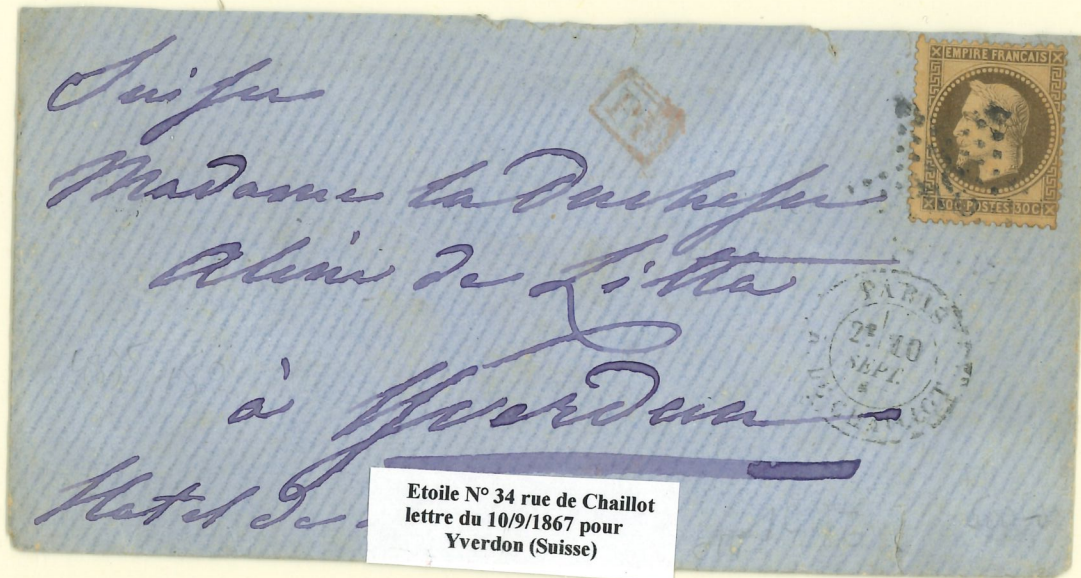 Suisse
Madame la Duchesse
Aline de Litta
à Yverdun
Hotel de
PD
EMPIRE FRANÇAIS
30C POSTES 30C
PARIS
2E 10
SEPT.
R. DE CHAILLOT
Etoile N° 34 rue de Chaillot
lettre du 10/9/1867 pour
Yverdon (Suisse)